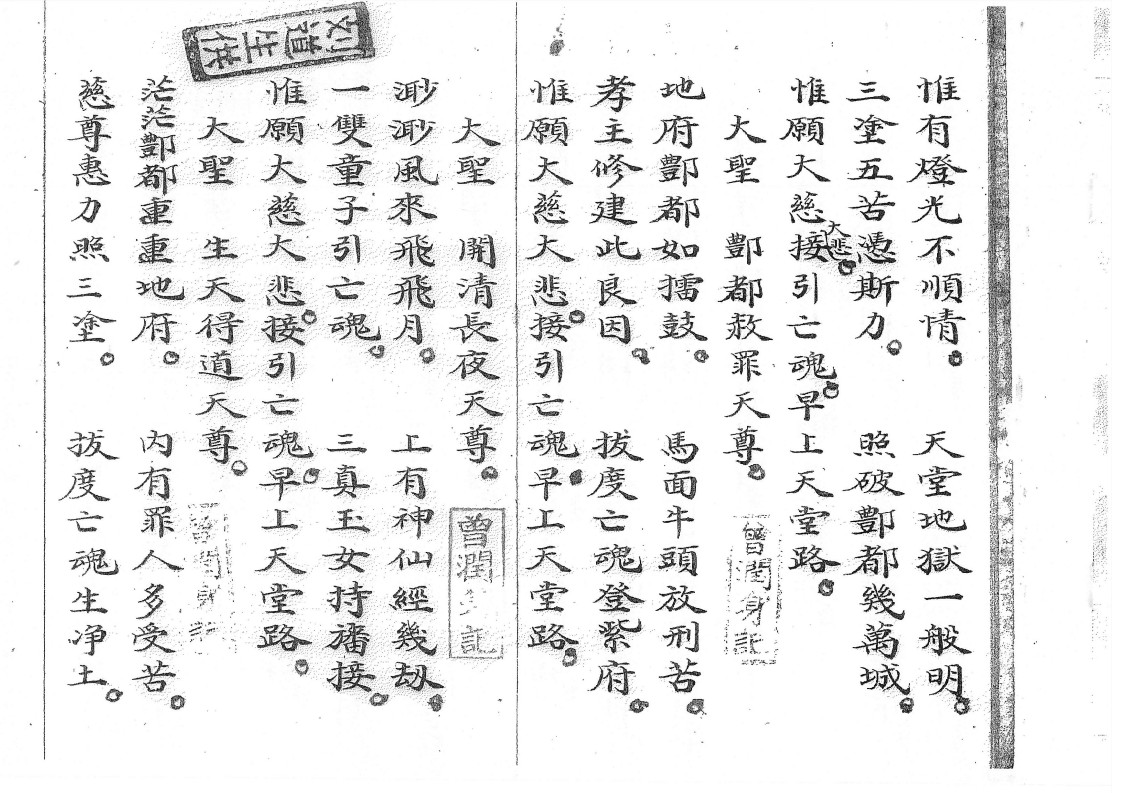 惟有燈光不順情。天堂地獄一般明。
三塗五苦憑斯力。照破酆都幾萬城。
惟願大慈大悲。接引亡魂。早上天堂路。
大聖 酆都救罪天尊。
曾潤身記
地府酆都如擂鼓。馬面牛頭放刑苦。
孝主修建此良因。拔度亡魂登紫府。
惟願大慈大悲。接引亡魂。早上天堂路。
大聖 開清長夜天尊。
曾潤身記
渺渺風來飛飛月。上有神仙經幾刼。
一雙童子引亡魂。三真玉女持旛接。
惟願大慈大悲。接引亡魂。早上天堂路。
大聖 生天得道天尊。
曾潤身記
茫茫酆都重重地府。內有罪人多受苦。
慈尊惠力照三塗。拔度亡魂生净土。
刘道生供